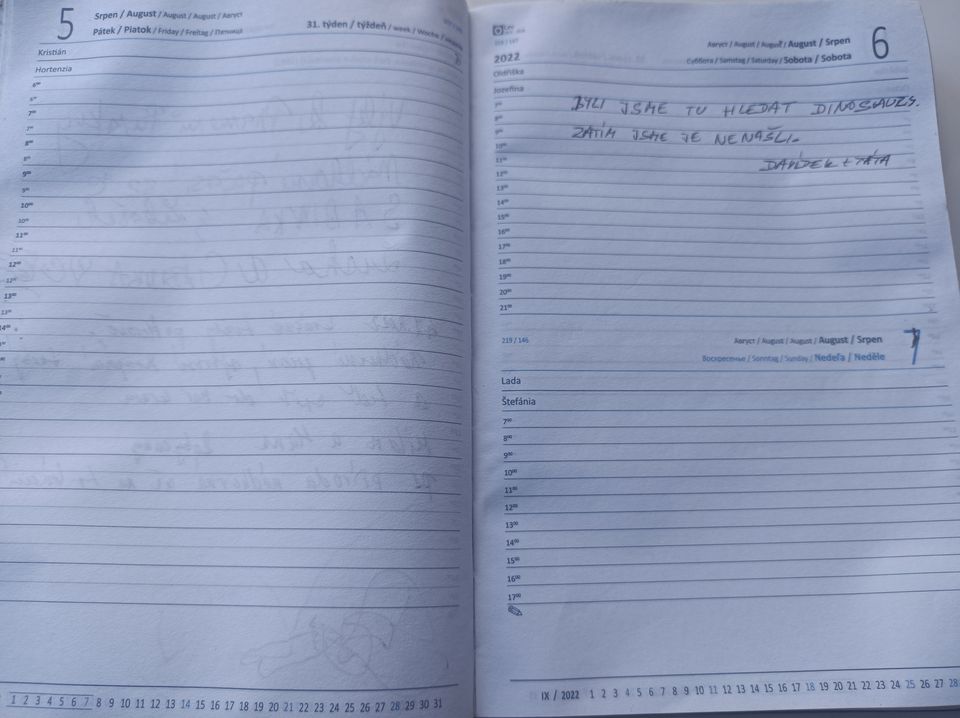 5
Srpen / August / August / August / Август
Pátek / Piatok / Friday / Freitag / Пятница
31. týden / týždeň / week / Woche /
Kristián
Hortenzia
6⁰⁰
7⁰⁰
7⁰⁰
8⁰⁰
8⁰⁰
9⁰⁰
9⁰⁰
10⁰⁰
10⁰⁰
11⁰⁰
11⁰⁰
12⁰⁰
12⁰⁰
13⁰⁰
13⁰⁰
14⁰⁰
1 2 3 4 5 6 7 8 9 10 11 12 13 14 15 16 17 18 19 20 21 22 23 24 25 26 27 28 29 30 31
2022
Август / August / August / August / Srpen
Суббота / Samstag / Saturday / Sobota / Sobota
6
Oldřiška
Jozefína
7⁰⁰
8⁰⁰
9⁰⁰
10⁰⁰
11⁰⁰
12⁰⁰
13⁰⁰
14⁰⁰
15⁰⁰
16⁰⁰
17⁰⁰
18⁰⁰
19⁰⁰
20⁰⁰
21⁰⁰
BYLI JSME TU HLEDAT DINOSAURY.
ZATÍM JSME JE NENAŠLI.
DAVÍDEK + TÁTA
219 / 146
Август / August / August / August / Srpen
Воскресенье / Sonntag / Sunday / Nedeľa / Neděle
7
Lada
Štefánia
7⁰⁰
8⁰⁰
9⁰⁰
10⁰⁰
11⁰⁰
12⁰⁰
13⁰⁰
14⁰⁰
15⁰⁰
16⁰⁰
17⁰⁰
IX / 2022 1 2 3 4 5 6 7 8 9 10 11 12 13 14 15 16 17 18 19 20 21 22 23 24 25 26 27 28